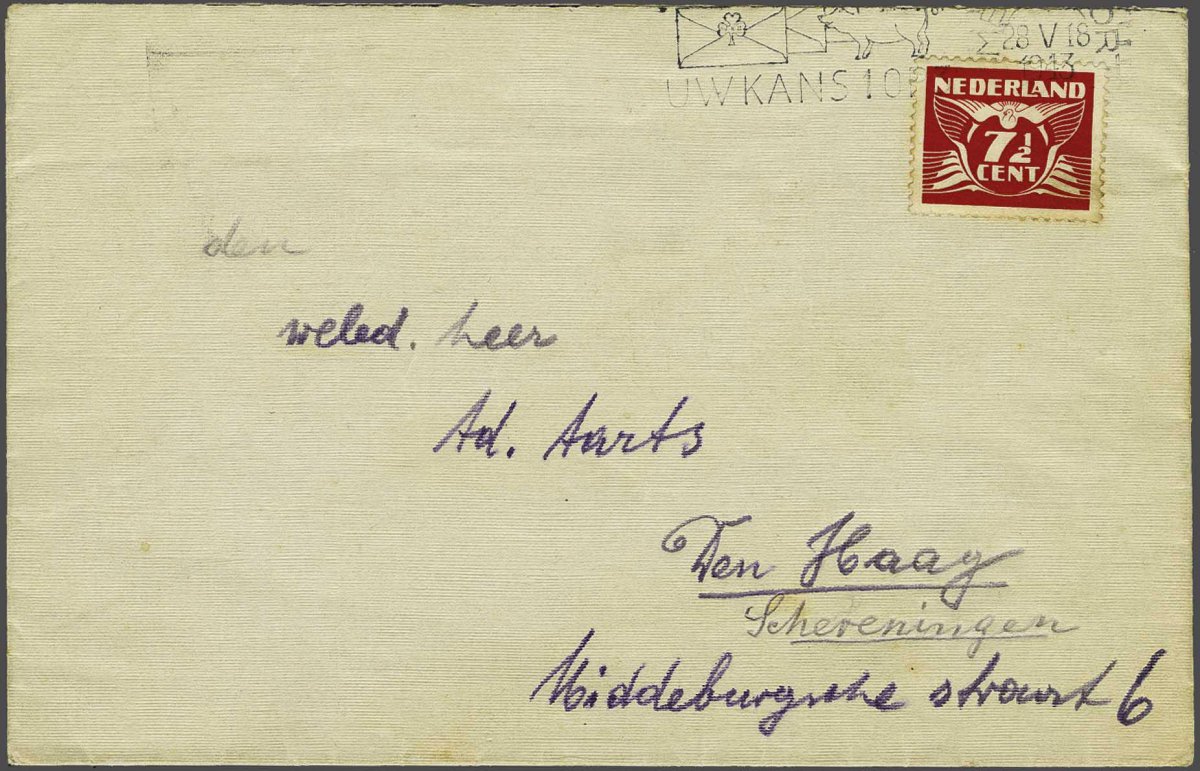 28 V 18
1943
UW KANS 1 OP
NEDERLAND
7½
CENT
den
weled. heer
Ad. Aarts
Den Haag
Scheveningen
Middeburgsche straat 6